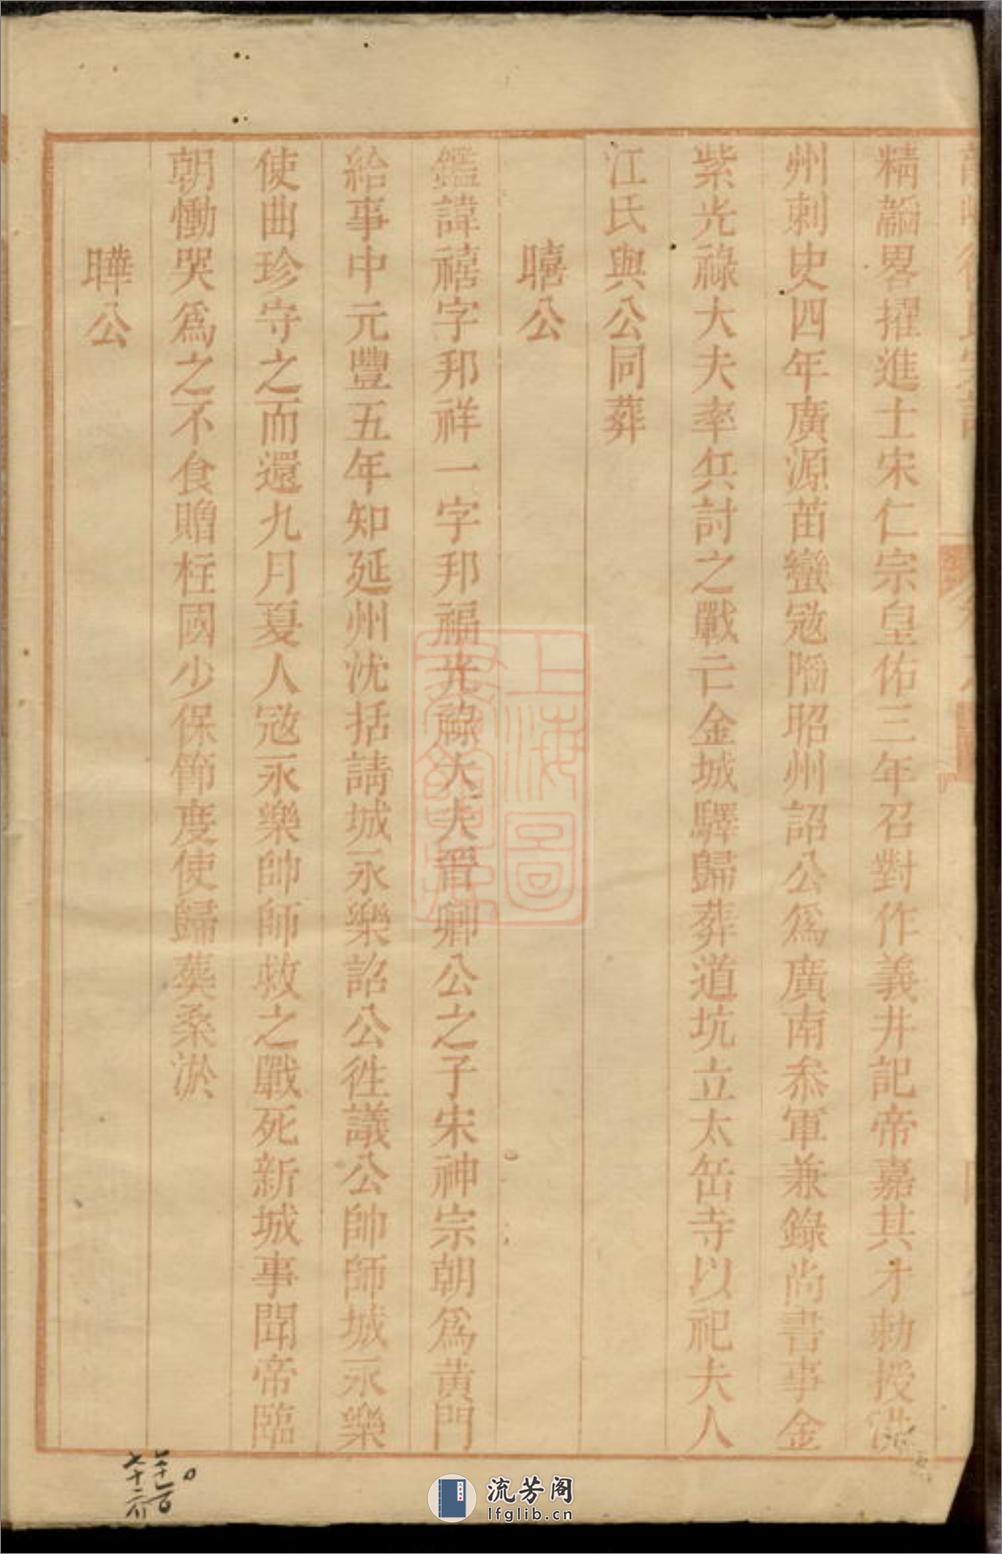 精韜畧擢進士宋仁宗皇佑三年召對作義井記帝嘉其才勅授
州刺史四年廣源苗蠻宼陷昭州詔公爲廣南叅軍兼錄尚書事金
紫光祿大夫率兵討之戰亡金城驛歸葬道坑立太岳寺以祀夫人
江氏與公同葬
暿公
鑑諱禧字邦祥一字邦福光祿大夫晋卿公之子宋神宗朝爲黃門
給事中元豐五年知延州沈括請城永樂詔公徃議公帥師城永樂
使曲珍守之而還九月夏人宼永樂帥師救之戰死新城事聞帝臨
朝慟哭爲之不食贈柱國少保節度使歸葬桑淤
曄公
上海圖
七十二
流芳阁
lfglib.cn